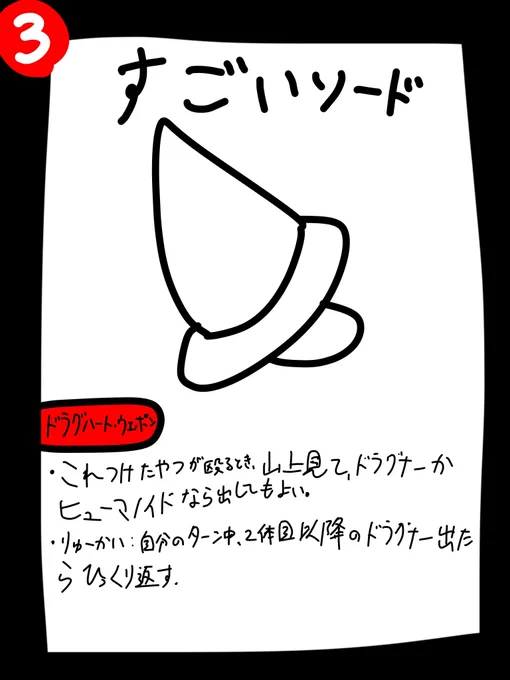 3
すごいソード
ドラグハート・ウエポン
・これつけたやつが殴るとき、山上見て、ドラグナーか
ヒューマノイドなら出してもよい。
・りゅーかい:自分のターン中、2体目以降のドラグナー出た
らひっくり返す.